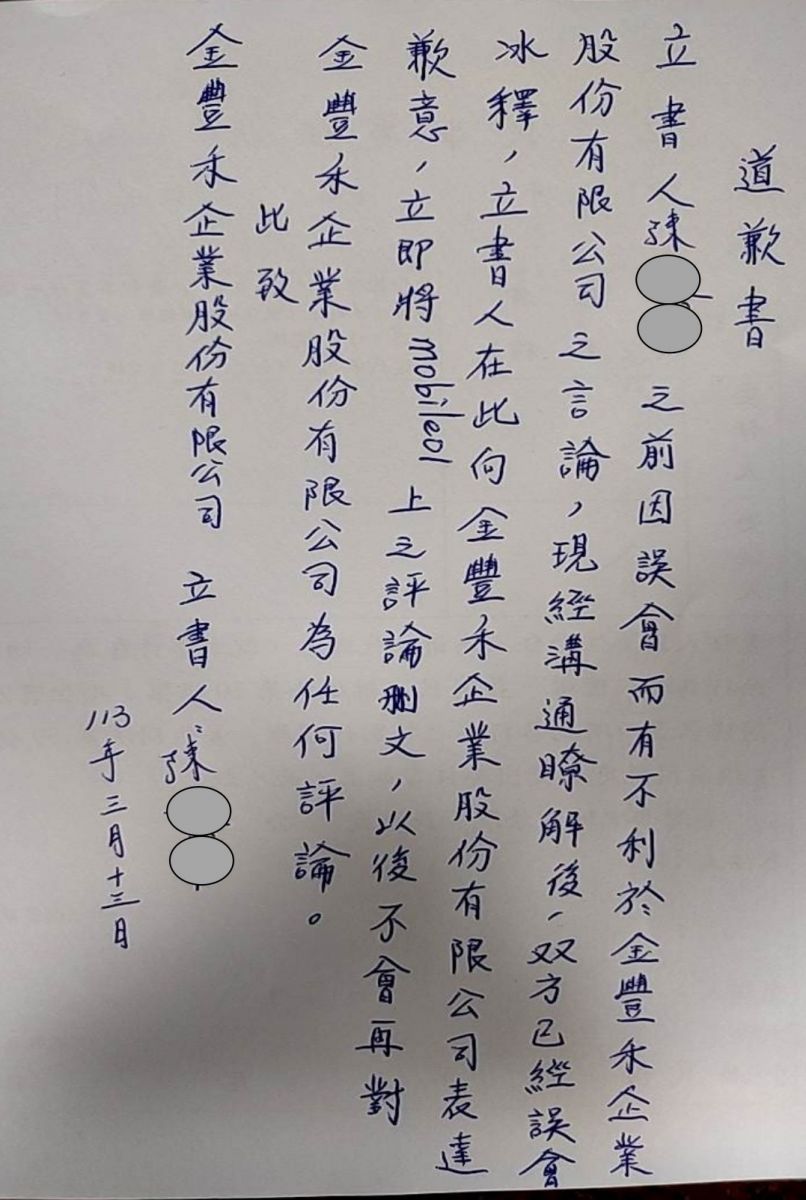 道歉書
立書人陳 之前因誤會而有不利於金豐禾企業
股份有限公司之言論，現經溝通瞭解後，双方已經誤會
冰釋，立書人在此向金豐禾企業股份有限公司表達
歉意，立即將mobile01上之評論刪文，以後不會再對
金豐禾企業股份有限公司為任何評論。
此致
金豐禾企業股份有限公司 立書人：陳
113年三月十三日